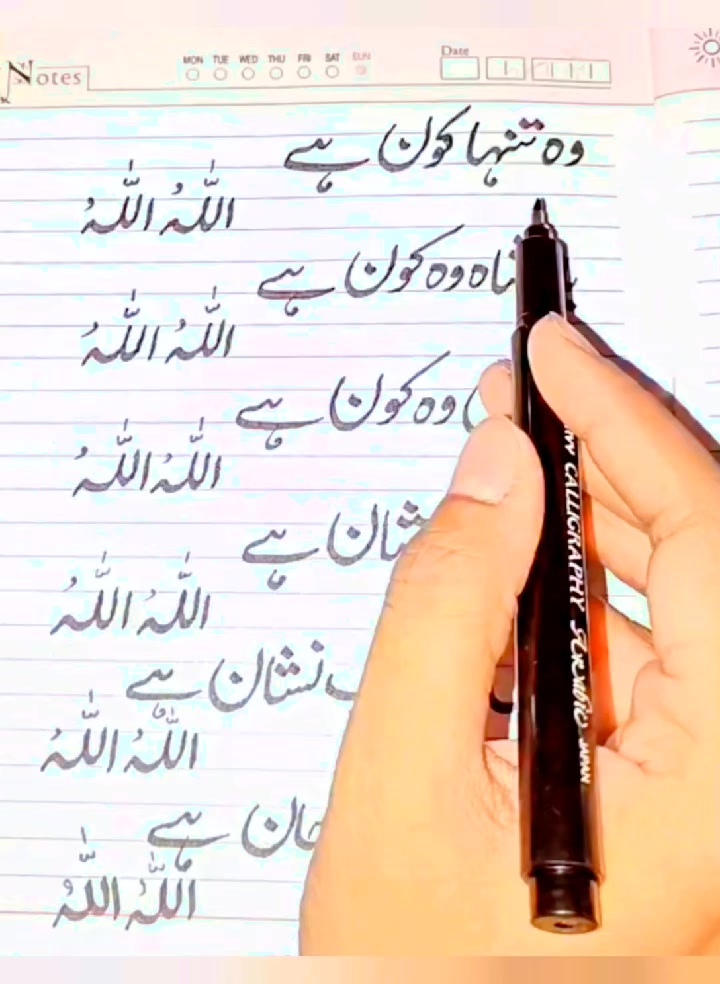 Notes
MON TUE WED THU FRI SAT SUN
Date
وہ تنہا کون ہے
اللہُ اللہُ
وہ کون ہے
اللہُ اللہُ
وہ کون ہے
اللہُ اللہُ
ہے
اللہُ اللہُ
نشان ہے
اللہُ اللہُ
ہے
اللہُ اللہُ
CALLIGRAPHY
JAPAN